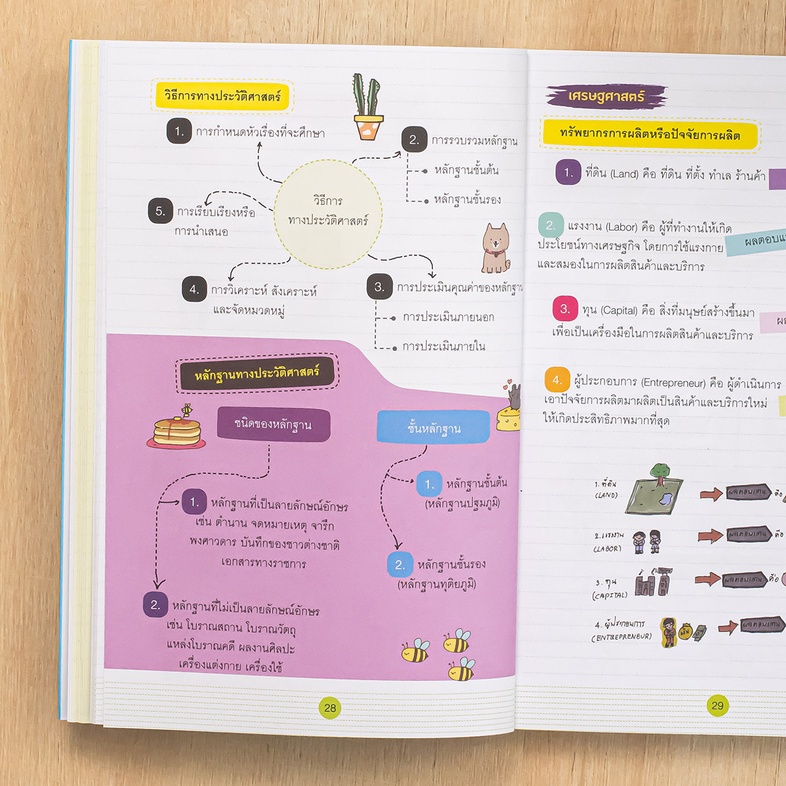 วิธีการทางประวัติศาสตร์
1. การกำหนดหัวเรื่องที่จะศึกษา
2. การรวบรวมหลักฐาน
หลักฐานชั้นต้น
หลักฐานชั้นรอง
วิธีการ
ทางประวัติศาสตร์
5. การเรียบเรียงหรือ
การนำเสนอ
4. การวิเคราะห์ สังเคราะห์
และจัดหมวดหมู่
3. การประเมินคุณค่าของหลักฐาน
การประเมินภายนอก
การประเมินภายใน
หลักฐานทางประวัติศาสตร์
ชนิดของหลักฐาน
1. หลักฐานที่เป็นลายลักษณ์อักษร
เช่น ตำนาน จดหมายเหตุ จารึก
พงศาวดาร บันทึกของชาวต่างชาติ
เอกสารทางราชการ
2. หลักฐานที่ไม่เป็นลายลักษณ์อักษร
เช่น โบราณสถาน โบราณวัตถุ
แหล่งโบราณคดี ผลงานศิลปะ
เครื่องแต่งกาย เครื่องใช้
ชั้นหลักฐาน
1. หลักฐานชั้นต้น
(หลักฐานปฐมภูมิ)
2. หลักฐานชั้นรอง
(หลักฐานทุติยภูมิ)
28
เศรษฐศาสตร์
ทรัพยากรการผลิตหรือปัจจัยการผลิต
1. ที่ดิน (Land) คือ ที่ดิน ที่ตั้ง ทำเล ร้านค้า
2. แรงงาน (Labor) คือ ผู้ที่ทำงานให้เกิด
ประโยชน์ทางเศรษฐกิจ โดยการใช้แรงกาย
และสมองในการผลิตสินค้าและบริการ
3. ทุน (Capital) คือ สิ่งที่มนุษย์สร้างขึ้นมา
เพื่อเป็นเครื่องมือในการผลิตสินค้าและบริการ
4. ผู้ประกอบการ (Entrepreneur) คือ ผู้ดำเนินการ
เอาปัจจัยการผลิตมาผลิตเป็นสินค้าและบริการใหม่
ให้เกิดประสิทธิภาพมากที่สุด
1. ที่ดิน
(LAND)
ผลตอบแทน คือ
2. แรงงาน
(LABOR)
ผลตอบแทน คือ
3. ทุน
(CAPITAL)
ผลตอบแทน คือ
4. ผู้ประกอบการ
(ENTREPRENEUR)
ผลตอบแทน
29